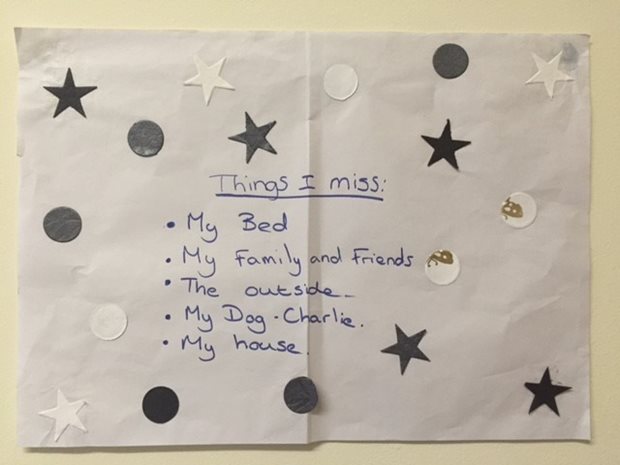 Things I miss:
• My Bed
• My Family and Friends
• The outside.
• My Dog - Charlie.
• My house.